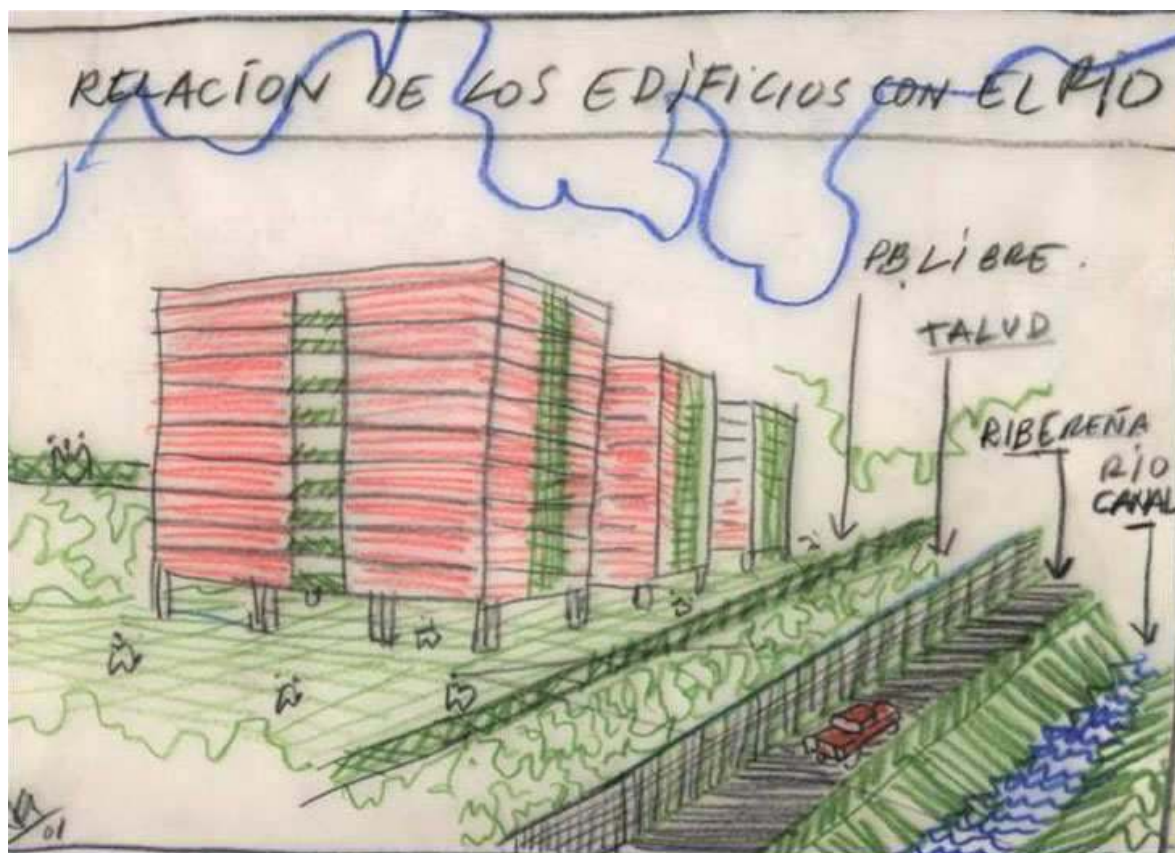 RELACIÓN DE LOS EDIFICIOS CON EL RÍO
PB LIBRE.
TALUD
RIBEREÑA
RÍO
CANAL
01